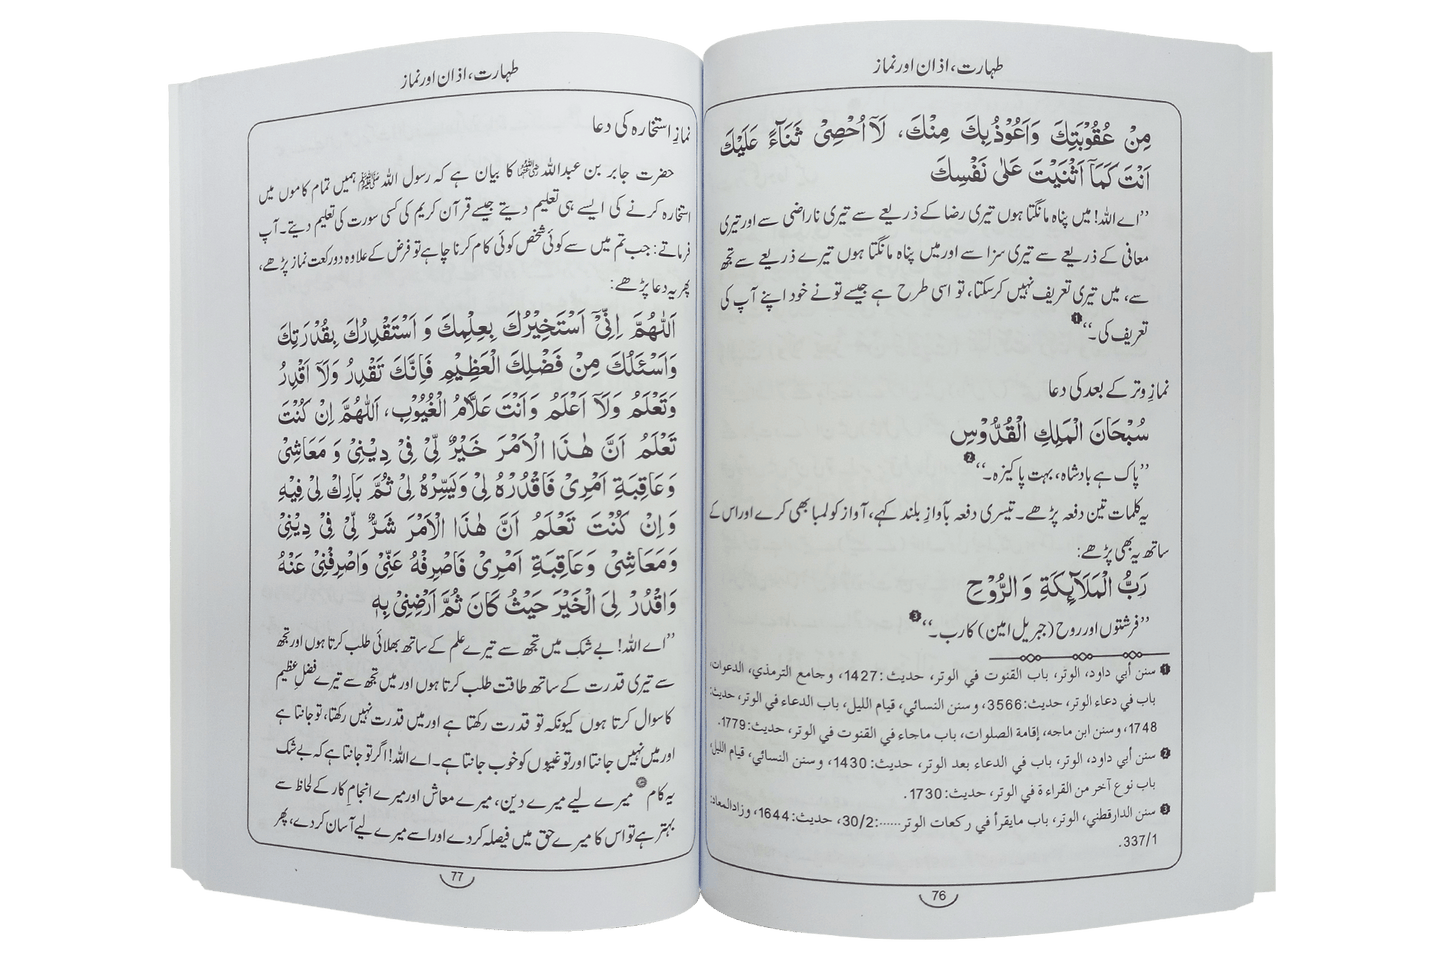 طہارت، اذان اور نماز
مِنْ عُقُوْبَتِكَ وَاَعُوْذُبِكَ مِنْكَ، لَآ اُحْصِىْ ثَنَآءً عَلَيْكَ
اَنْتَ كَمَآ اَثْنَيْتَ عَلٰى نَفْسِكَ
’’اے اللہ! میں پناہ مانگتا ہوں تیری رضا کے ذریعے سے تیری ناراضی سے اور تیری
معافی کے ذریعے سے تیری سزا سے اور میں پناہ مانگتا ہوں تیرے ذریعے سے تجھ
سے، میں تیری تعریف نہیں کرسکتا، تو اسی طرح ہے جیسے تونے خود اپنے آپ کی
تعریف کی۔‘‘❶
نمازِ وتر کے بعد کی دعا
سُبْحَانَ الْمَلِكِ الْقُدُّوْسِ
’’پاک ہے بادشاہ، بہت پاکیزہ۔‘‘❷
یہ کلمات تین دفعہ پڑھے۔ تیسری دفعہ بآوازِ بلند کہے، آواز کو لمبا بھی کرے اور اس کے
ساتھ یہ بھی پڑھے:
رَبُّ الْمَلَآئِكَةِ وَالرُّوْحِ
’’فرشتوں اور روح (جبریل امین) کا رب۔‘‘❸
❶ سنن أبي داود، الوتر، باب القنوت في الوتر، حديث: 1427، وجامع الترمذي، الدعوات،
باب في دعاء الوتر، حديث: 3566، وسنن النسائي، قيام الليل، باب الدعاء في الوتر، حديث:
1748، وسنن ابن ماجه، إقامة الصلوات، باب ماجاء في القنوت في الوتر، حديث: 1779.
❷ سنن أبي داود، الوتر، باب في الدعاء بعد الوتر، حديث: 1430، وسنن النسائي، قيام الليل،
باب نوع آخر من القراءة في الوتر، حديث: 1730.
❸ سنن الدارقطني، الوتر، باب مايقرأ في ركعات الوتر......: 30/2، حديث: 1644، وزادالمعاد:
337/1.
76
طہارت، اذان اور نماز
نمازِ استخارہ کی دعا
حضرت جابر بن عبداللہ رضی اللہ عنہما کا بیان ہے کہ رسول اللہ ﷺ ہمیں تمام کاموں میں
استخارہ کرنے کی ایسے ہی تعلیم دیتے جیسے قرآن کریم کی کسی سورت کی تعلیم دیتے۔ آپ
فرماتے: جب تم میں سے کوئی شخص کوئی کام کرنا چاہے تو فرض کے علاوہ دو رکعت نماز پڑھے،
پھر یہ دعا پڑھے:
اَللّٰهُمَّ اِنِّىْٓ اَسْتَخِيْرُكَ بِعِلْمِكَ وَ اَسْتَقْدِرُكَ بِقُدْرَتِكَ
وَاَسْئَلُكَ مِنْ فَضْلِكَ الْعَظِيْمِ فَاِنَّكَ تَقْدِرُ وَلَآ اَقْدِرُ
وَتَعْلَمُ وَلَآ اَعْلَمُ وَاَنْتَ عَلَّامُ الْغُيُوْبِ، اَللّٰهُمَّ اِنْ كُنْتَ
تَعْلَمُ اَنَّ هٰذَا الْاَمْرَ خَيْرٌ لِّىْ فِىْ دِيْنِىْ وَ مَعَاشِىْ
وَعَاقِبَةِ اَمْرِىْ فَاقْدُرْهُ لِىْ وَيَسِّرْهُ لِىْ ثُمَّ بَارِكْ لِىْ فِيْهِ
وَاِنْ كُنْتَ تَعْلَمُ اَنَّ هٰذَا الْاَمْرَ شَرٌّ لِّىْ فِىْ دِيْنِىْ
وَمَعَاشِىْ وَعَاقِبَةِ اَمْرِىْ فَاصْرِفْهُ عَنِّىْ وَاصْرِفْنِىْ عَنْهُ
وَاقْدُرْ لِىَ الْخَيْرَ حَيْثُ كَانَ ثُمَّ اَرْضِنِىْ بِهٖ
’’اے اللہ! بے شک میں تجھ سے تیرے علم کے ساتھ بھلائی طلب کرتا ہوں اور تجھ
سے تیری قدرت کے ساتھ طاقت طلب کرتا ہوں اور میں تجھ سے تیرے فضلِ عظیم
کا سوال کرتا ہوں کیونکہ تو قدرت رکھتا ہے اور میں قدرت نہیں رکھتا، تو جانتا ہے
اور میں نہیں جانتا اور تو غیبوں کو خوب جانتا ہے۔ اے اللہ! اگر تو جانتا ہے کہ بے شک
یہ کام میرے لیے میرے دین، میرے معاش اور میرے انجامِ کار کے لحاظ سے
بہتر ہے تو اس کا میرے حق میں فیصلہ کردے اور اسے میرے لیے آسان کردے، پھر
77